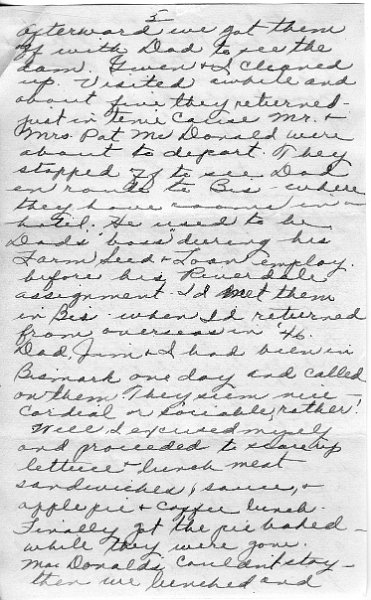 5
Afterward we got them
off with Dad to see the
dam. Gwen & I cleaned
up. Visited awhile and
about five they returned -
just in time cause Mr. &
Mrs. Pat Mc Donald were
about to depart. They
stopped off to see Dad
en route to Bis - where
they have rooms in a
hotel. He used to be
Dads "boss" during his
Farm Seed & Loan employ.
before his Riverdale
assignment. I'd met them
in Bis - when I'd returned
from overseas in '46.
Dad, Jim & I had been in
Bismark one day and called
on them. They seem nice -
cordial or sociable, rather!
Well, I excused myself
and proceeded to scare up
lettuce & lunch meat
sandwiches, sauce, &
apple pie & coffee lunch.
Finally got the pie baked -
while they were gone.
Mac Donalds couldn't stay -
then we lunched and